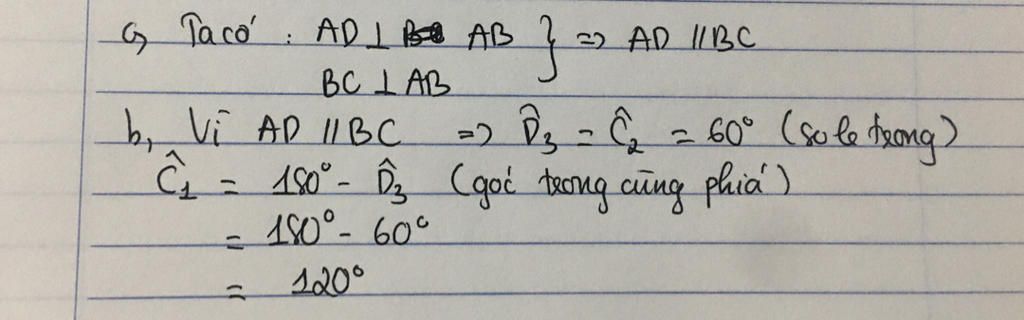 a, Ta có : AD ⊥ AB } => AD // BC
BC ⊥ AB
b, Vì AD // BC => D̂₃ = Ĉ₂ = 60° (so le trong)
Ĉ₁ = 180° - D̂₃ (góc trong cùng phía)
= 180° - 60°
= 120°